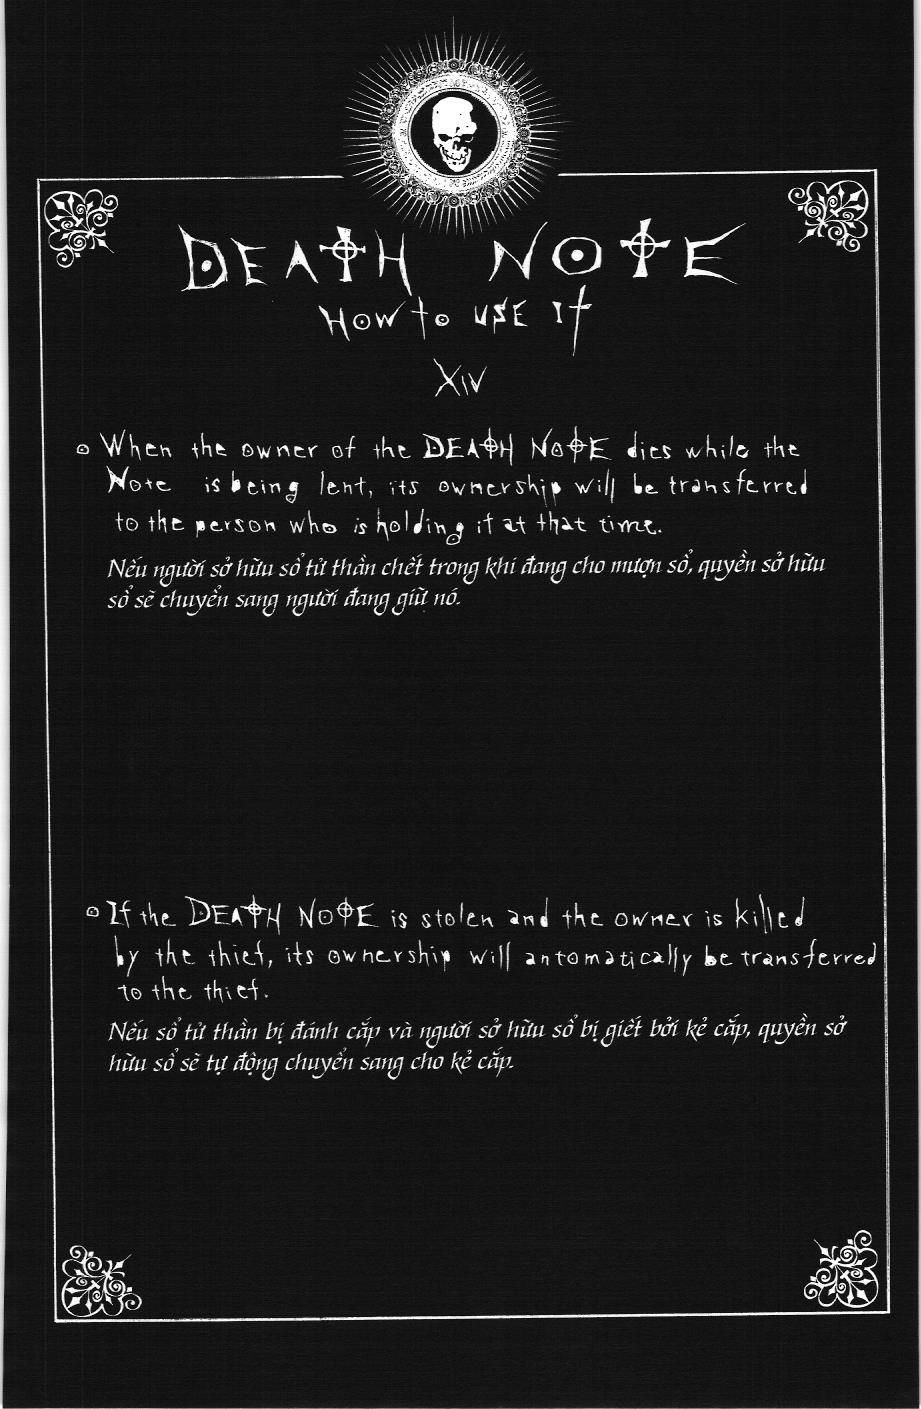 DEATH NOTE
HOW to USE It
XIV
When the owner of the DEATH NOTE dies while the
Note is being lent, its ownership will be transferred
to the person who is holding it at that time.
Nếu người sở hữu sổ tử thần chết trong khi đang cho mượn sổ, quyền sở hữu
sổ sẽ chuyển sang người đang giữ nó.
If the DEATH NOTE is stolen and the owner is killed
by the thief, its ownership will automatically be transferred
to the thief.
Nếu sổ tử thần bị đánh cắp và người sở hữu sổ bị giết bởi kẻ cắp, quyền sở
hữu sổ sẽ tự động chuyển sang cho kẻ cắp.